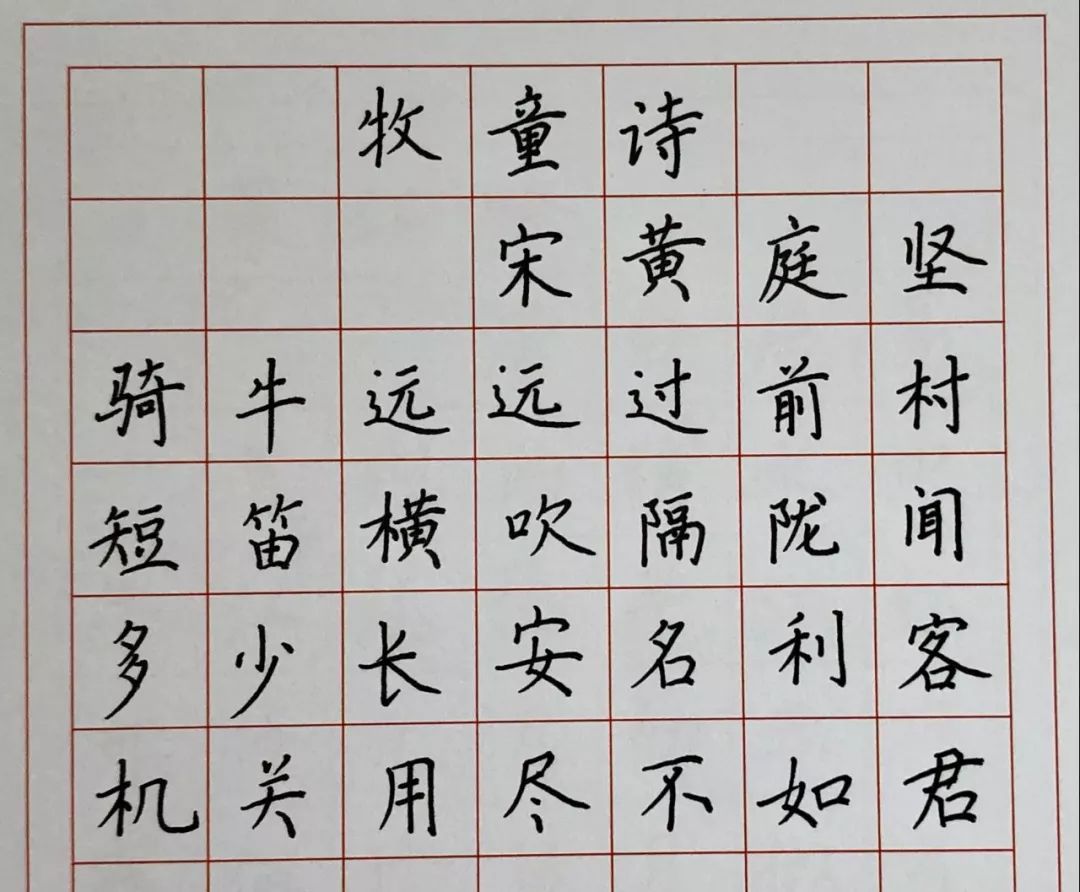 牧童诗
宋黄庭坚
骑牛远远过前村
短笛横吹隔陇闻
多少长安名利客
机关用尽不如君